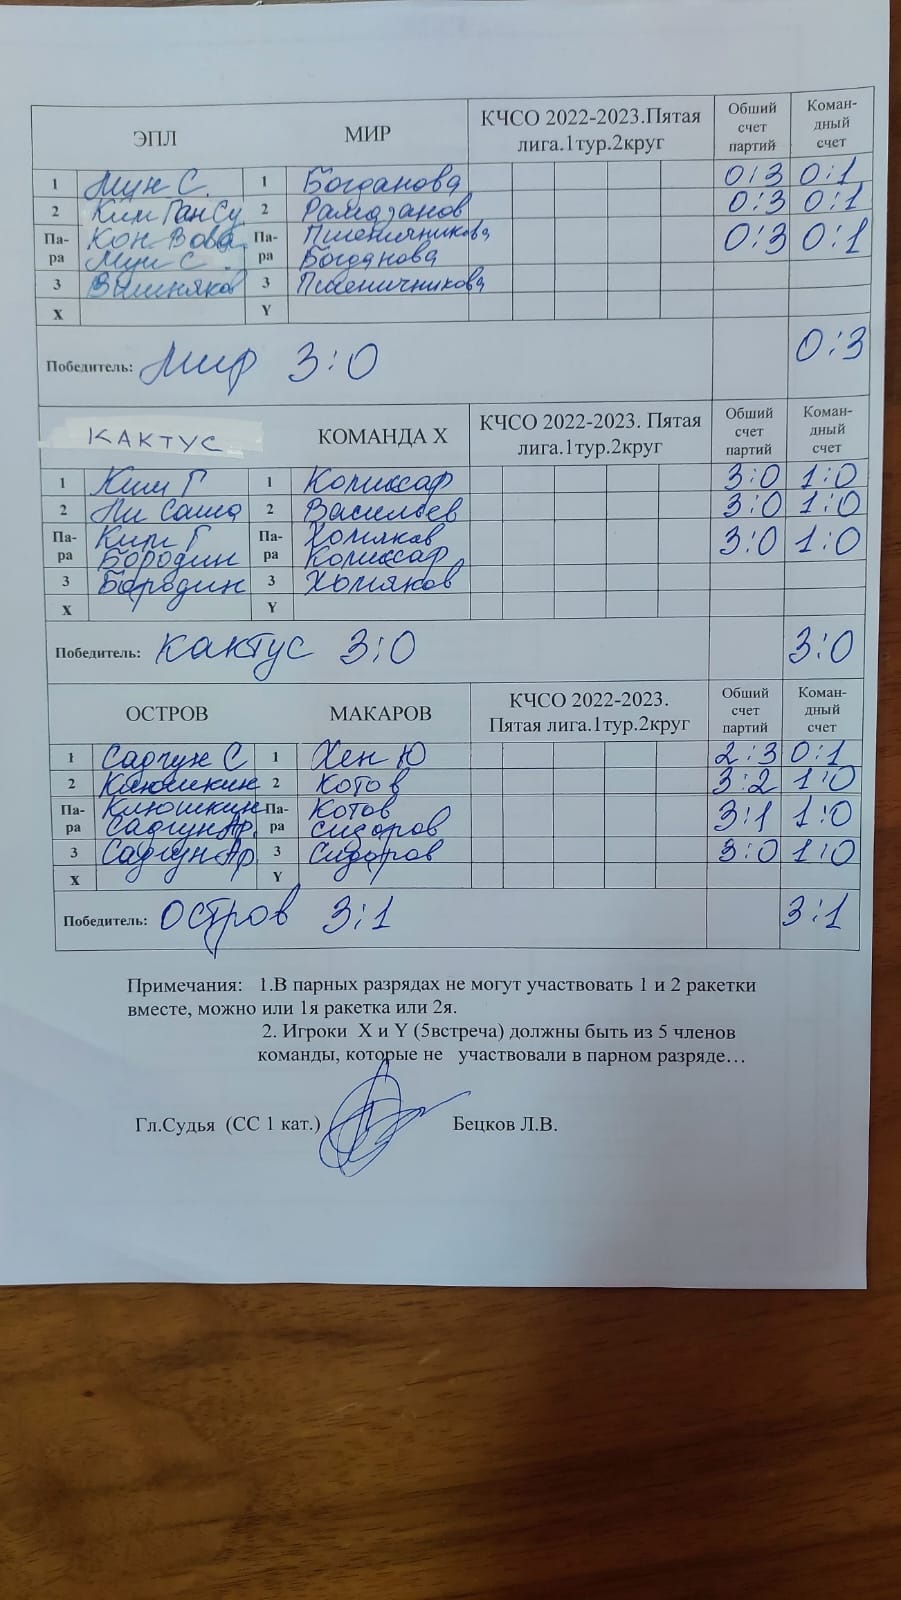 ЭПЛ МИР КЧСО 2022-2023.Пятая лига.1тур.2круг Обший счет партий Коман-дный счет
1 Мун С. 1 Богданова 0:3 0:1
2 Ким Ган Су 2 Рамазанов 0:3 0:1
Па-ра Кон Вова Па-ра Пшеничникова 0:3 0:1
Мун С. Богданова
3 Вишняков 3 Пшеничникова
X Y
Победитель: Мир 3:0 0:3
КАКТУС КОМАНДА X КЧСО 2022-2023. Пятая лига.1тур.2круг Обший счет партий Коман-дный счет
1 Ким Г 1 Комиссар 3:0 1:0
2 Ли Саша 2 Васильев 3:0 1:0
Па-ра Ким Г Па-ра Хомяков 3:0 1:0
Бородин Комиссар
3 Бородин 3 Хомяков
X Y
Победитель: Кактус 3:0 3:0
ОСТРОВ МАКАРОВ КЧСО 2022-2023. Пятая лига.1тур.2круг Обший счет партий Коман-дный счет
1 Садгун С 1 Хен Ю 2:3 0:1
2 Клюшкин 2 Котов 3:2 1:0
Па-ра Клюшкин Па-ра Котов 3:1 1:0
Садгун Ар. Сидоров
3 Садгун Ар 3 Сидоров 3:0 1:0
X Y
Победитель: Остров 3:1 3:1
Примечания: 1.В парных разрядах не могут участвовать 1 и 2 ракетки
вместе, можно или 1я ракетка или 2я.
2. Игроки X и Y (5встреча) должны быть из 5 членов
команды, которые не участвовали в парном разряде…
Гл.Судья (СС 1 кат.) Бецков Л.В.